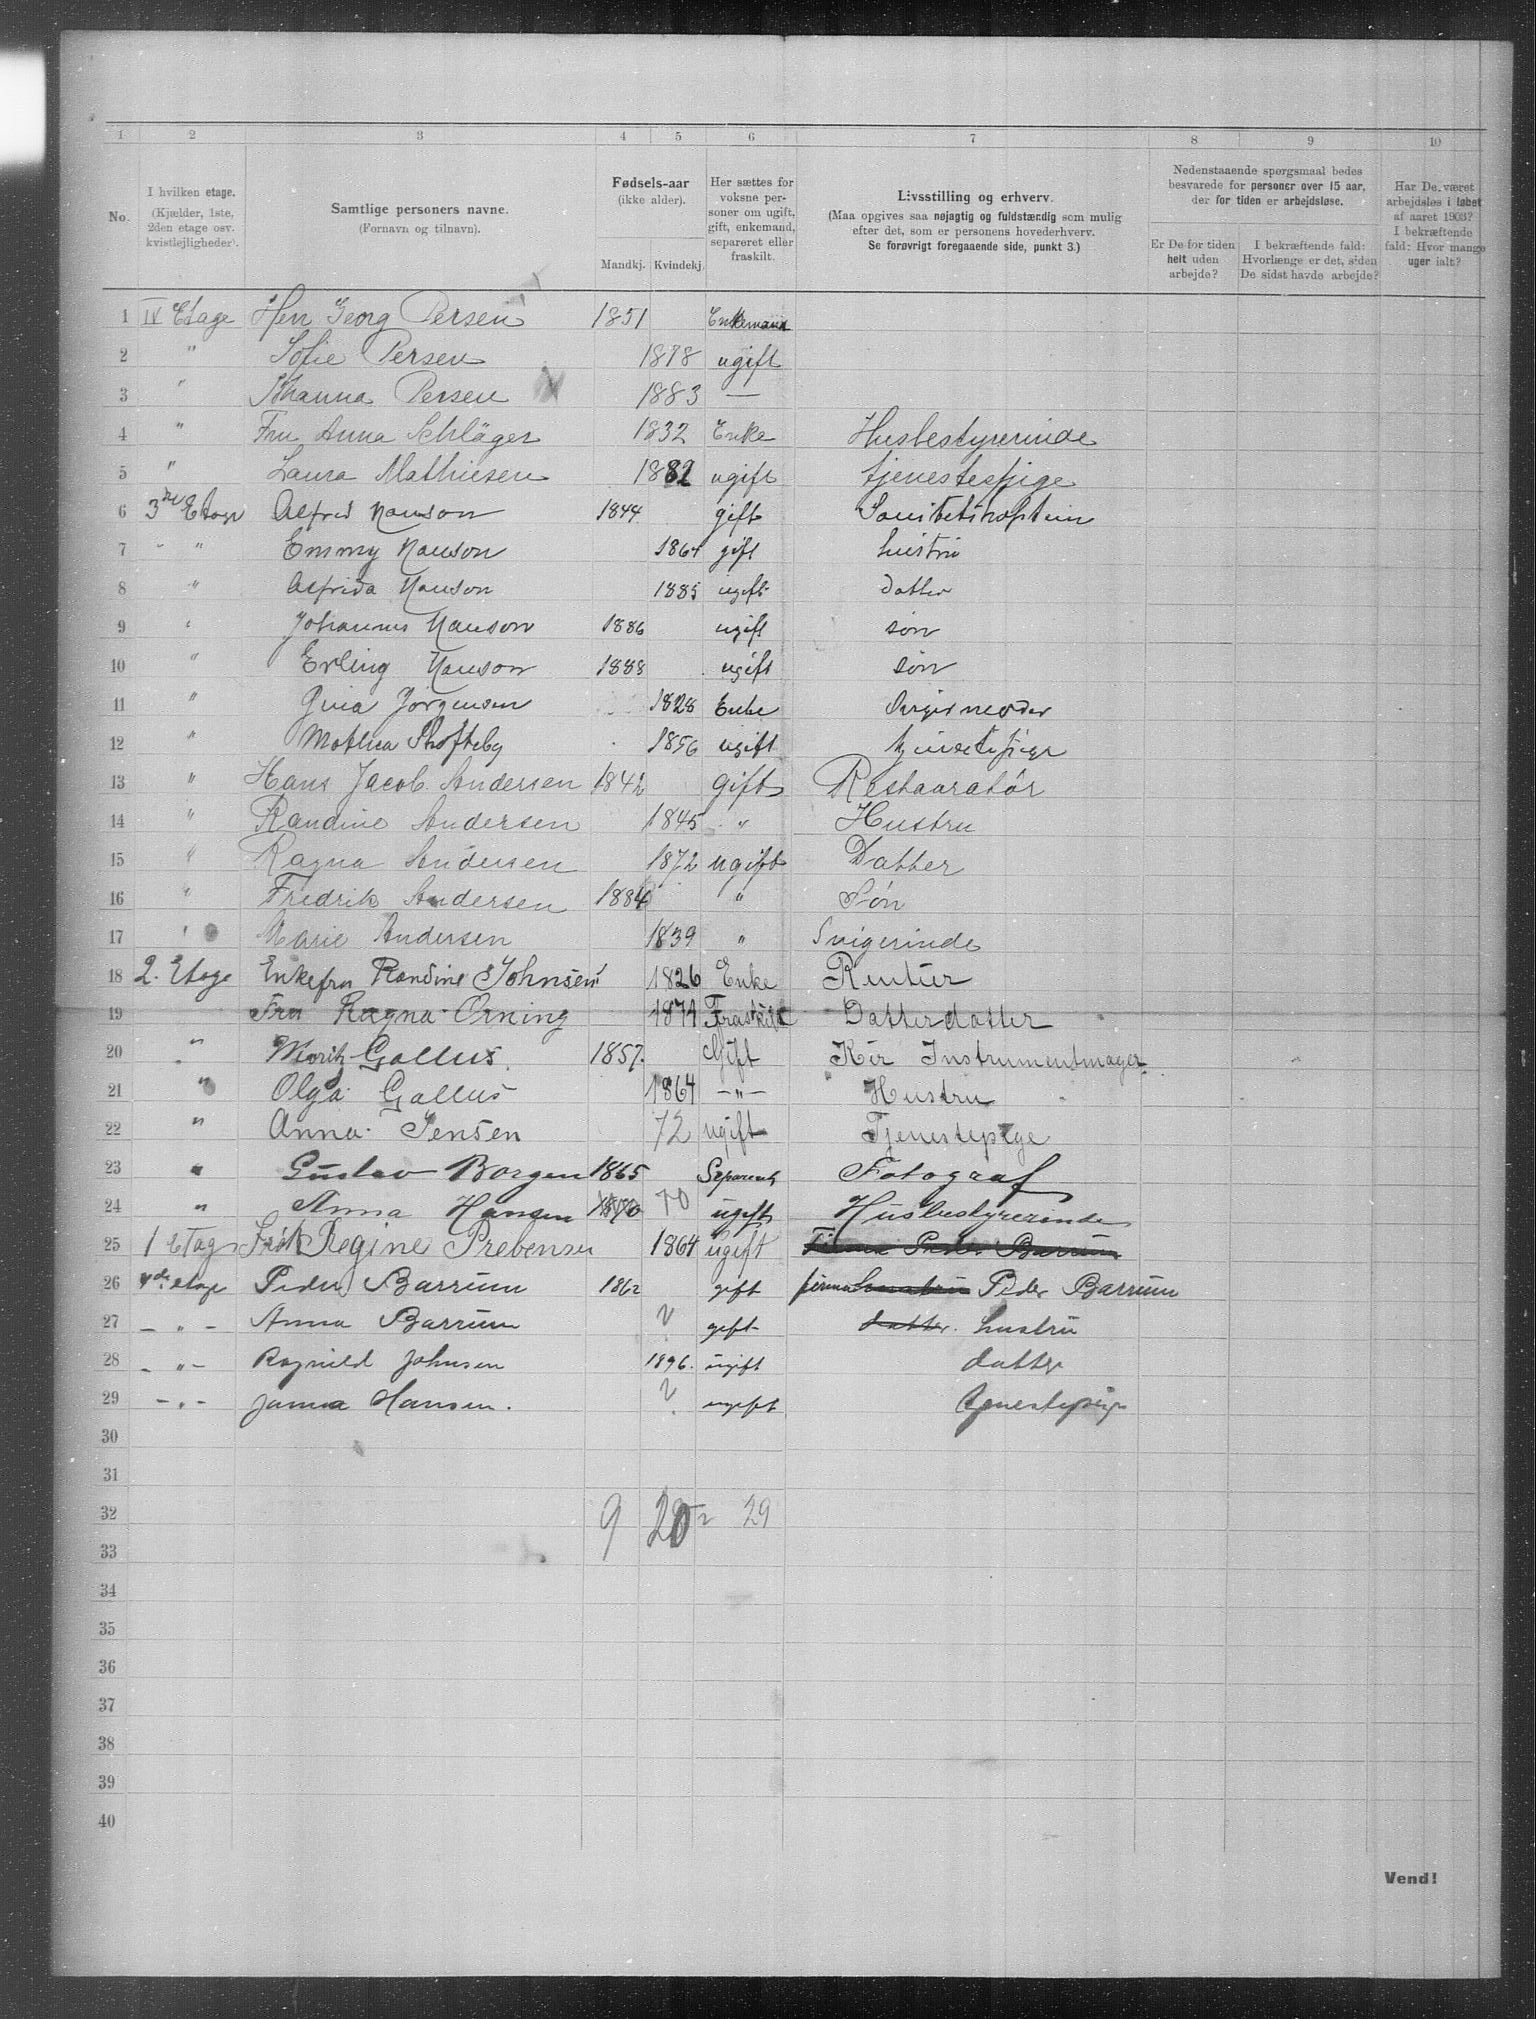 1 2 3 4 5 6 7 8 9 10
No.
I hvilken etage. (Kjælder, 1ste, 2den etage osv. kvistleiligheder).
Samtlige personers navne. (Fornavn og tilnavn).
Fødsels-aar (ikke alder).
Mandkj. Kvindekj.
Her sættes for voksne personer om ugift, gift, enkemand, separeret eller fraskilt.
Livsstilling og erhverv. (Maa opgives saa nøjagtig og fuldstændig som mulig efter det, som er personens hovederhverv. Se forøvrigt foregaaende side, punkt 3.)
Nedenstaaende spørgsmaal bedes besvarede for personer over 15 aar, der for tiden er arbejdsløse.
Er De for tiden helt uden arbejde?
I bekræftende fald: Hvorlænge er det, siden De sidst havde arbejde?
Har De været arbejdsløs i løbet af aaret 1903? I bekræftende fald: Hvor mange uger ialt?
1 IV Etage Herr Georg Persen 1851 Enkemand
2 " Sofie Persen 1878 ugift
3 " Johanna Persen 1883 —
4 " Fru Anna Schläger 1832 Enke Husbestyrerinde
5 " Laura Mathiesen 1882 ugift tjenestepige
6 3die Etage Alfred Nanson 1844 gift Sanitetskaptein
7 - " Emmy Nanson 1864 gift hustru
8 " Alfrida Nanson 1885 ugift datter
9 " Johannes Nanson 1886 ugift søn
10 " Erling Nanson 1888 ugift søn
11 " Gina Jørgensen 1828 Enke Svigermoder
12 " Mathea Skofteby 1856 ugift tjenestepige
13 " Hans Jacob Andersen 1842 gift Restauratør
14 " Randine Andersen 1845 " Hustru
15 " Ragna Andersen 1872 ugift Datter
16 " Fredrik Andersen 1884 " Søn
17 " Marie Andersen 1839 " Svigerinde
18 2. Etage Enkefru Randine Johnsen 1826 Enke Rentier
19 Fru Ragna Orning 1874 Fraskilt Datterdatter
20 " Moritz Gallus. 1857. Gift Kir Instrumentmager
21 " Olga Gallus 1864 —"— Hustru
22 " Anna Jensen 72 ugift Tjenestepige
23 " Gustav Borgen 1865 Separert Fotograf
24 " Anna Hansen 1870 70 ugift Husbestyrerinde
25 1 Etage Frøk Regine Prebensen 1864 ugift Firma Peder Barrum
26 4de etage Peder Barrum 1862 gift firma Peder Barrum
27 — " — Anna Barrum ? gift datter. hustru
28 — " — Ragnild Johnsen 1896. ugift datter
29 — " — Janna Hansen. ? ugift tjenestepige
30
31
32 9 20 29
33
34
35
36
37
38
39
40
Vend!